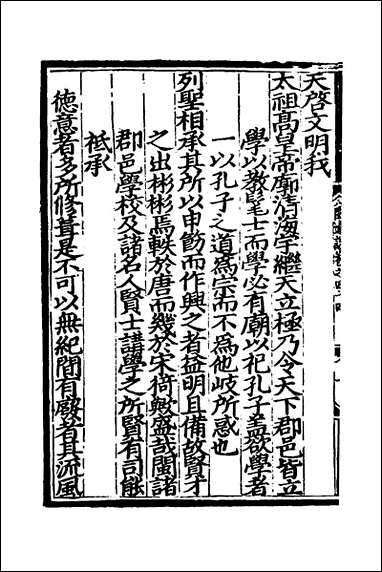 天啓文明我
太祖高皇帝廓清海宇繼天立極乃令天下郡邑皆立
學以教髦士而學必有廟以祀孔子蓋欲學者
一以孔子之道為宗而不為他岐所惑也
列聖相承其所以申飭而作興之者益明且備故賢才
之出彬彬焉軼於唐而幾於宋猗歟盛哉閩諸
郡邑學校及諸名人賢士講學之所賢有司能
祗承
德意者多所修葺是不可以無紀間有廢者其流風